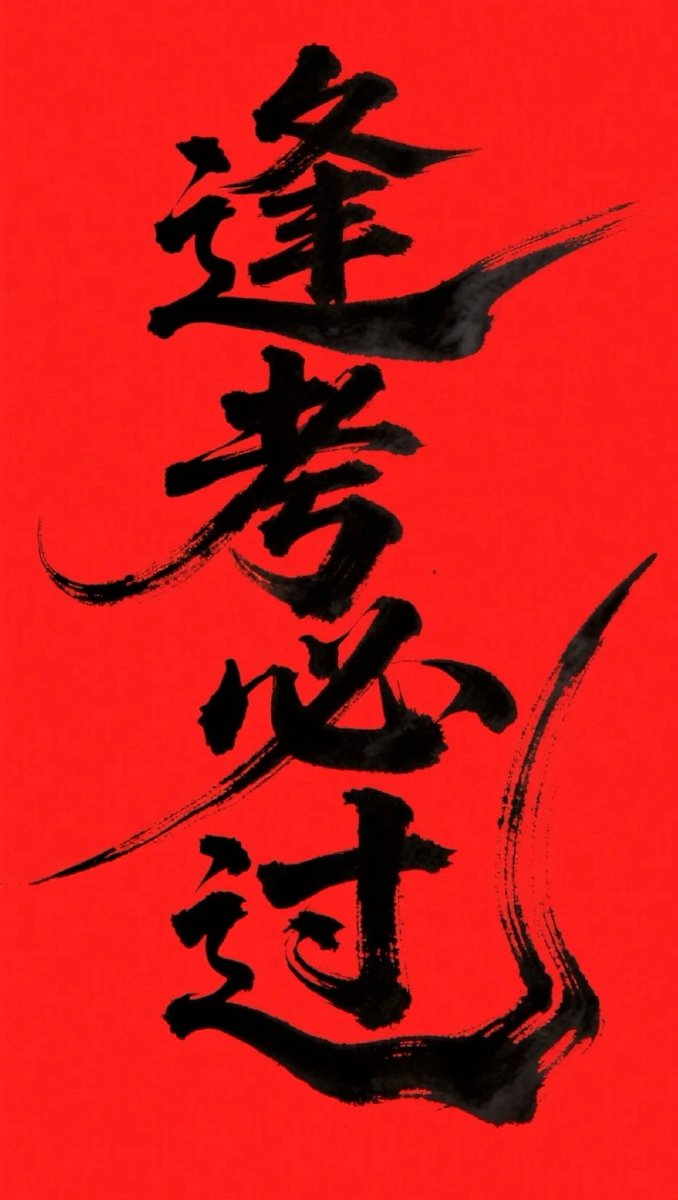 逢考必过